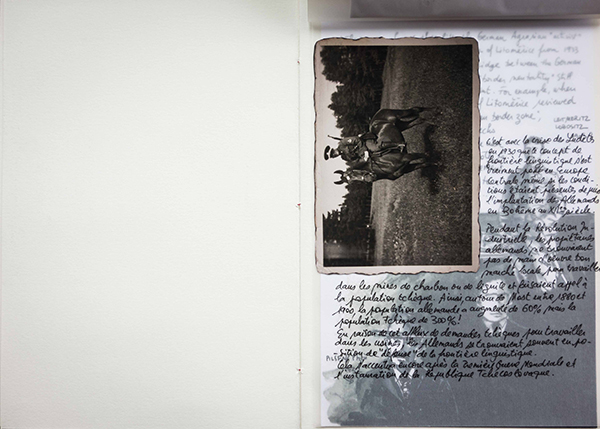 German Agrarian
of Litoměřice from 1933
between the German
For example, when
of Litoměřice reviewed
border zone",
C'est avec la crise des Sudètes
en 1930 que le concept de
frontière linguistique s'est
vraiment posé en Europe
Centrale même si les condi-
tions étaient présentes depuis
l'implantation des Allemands
en Bohême au siècle
Pendant la Révolution In-
dustrielle, les propriétaires
allemands ne trouvaient
pas de main d'œuvre bon
marché locale pour travailler
dans les mines de charbon ou de lignite et faisaient appel à
la population tchèque. Ainsi, autour de Most entre 1880 et
la population allemande a augmenté de 60% mais la
population tchèque de 300%!
En raison de cet afflux de demandes tchèques pour travailler
dans les usines, les Allemands se trouvaient souvent en po-
sition de "défense" de la frontière linguistique.
Cela s'accentua encore après la Première Guerre Mondiale et
l'instauration de la République Tchécoslovaque.